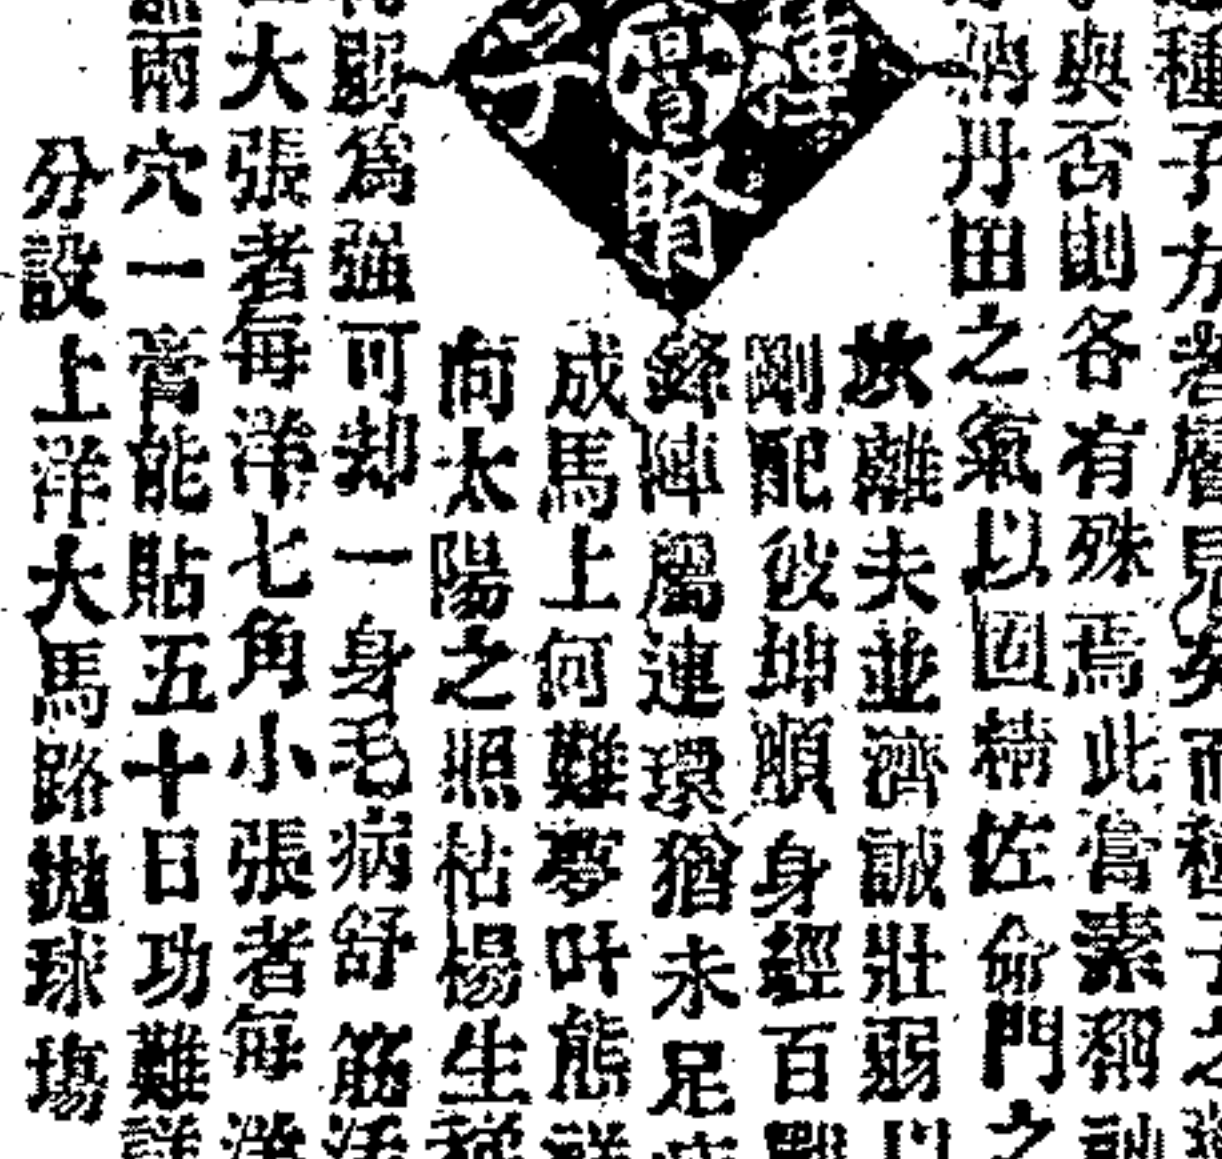 種子方
與否則各有殊焉此膏素稱
丹田之氣以固精佐命門之
坎離夫並濟誠壯弱以
剛配彼坤順身經百戰
鋒陣屬連環猶未足
成馬上何難夢叶熊祥
向太陽之照枯楊生稊
種子
膏腎
弱爲强可却一身毛病舒筋活
大張者每洋七角小張者每洋
兩穴一膏能貼五十日功難詳
分設上洋大馬路拋球塲